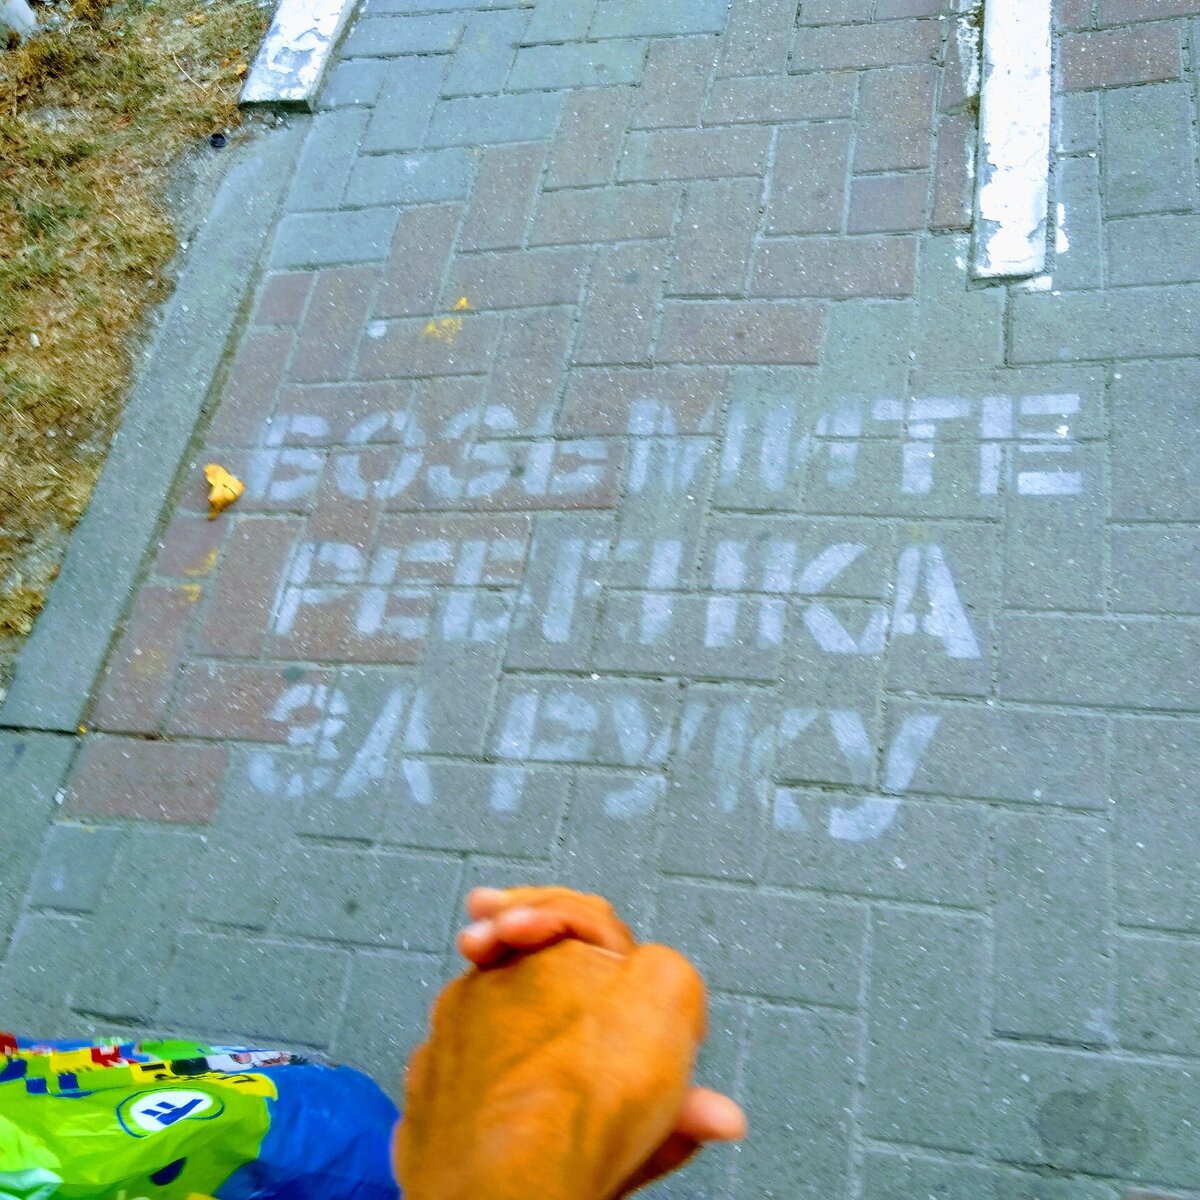 ВОЗЬМИТЕ
РЕБЕНКА
ЗА РУКУ